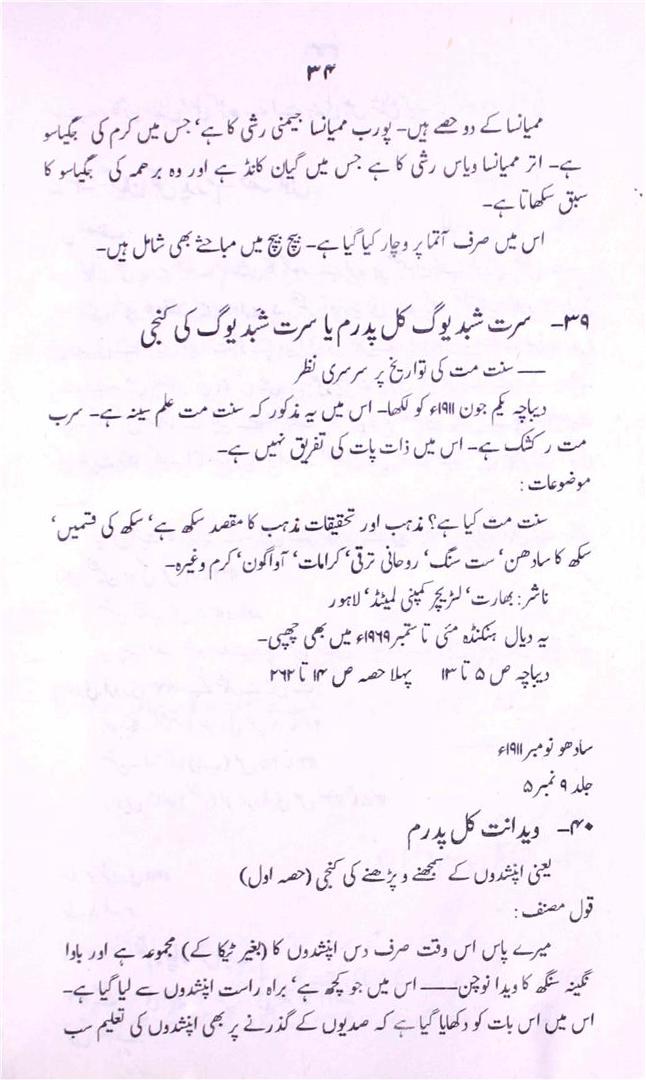 ۳۴
ممیانسا کے دو حصے ہیں۔ پورب ممیانسا جیمنی رشی کا ہے‘ جس میں کرم کی جگیاسو
ہے۔ اتر ممیانسا ویاس رشی کا ہے جس میں گیان کانڈ ہے اور وہ برھمہ کی جگیاسو کا
سبق سکھاتا ہے۔
اس میں صرف آتما پر وچار کیا گیا ہے۔ بیچ بیچ میں مباحثے بھی شامل ہیں۔
۳۹۔ سرت شبد یوگ کل پدرم یا سرت شبد یوگ کی کنجی
— سنت مت کی تواریخ پر سرسری نظر
دیباچہ یکم جون ۱۹۱۱ء کو لکھا۔ اس میں یہ مذکور کہ سنت مت علم سینہ ہے۔ سرب
مت رکشک ہے۔ اس میں ذات پات کی تفریق نہیں ہے۔
موضوعات :
سنت مت کیا ہے؟ مذہب اور تحقیقات مذہب کا مقصد سکھ ہے‘ سکھ کی قسمیں‘
سکھ کا سادھن‘ ست سنگ‘ روحانی ترقی‘ کرامات‘ آواگون‘ کرم وغیرہ۔
ناشر : بھارت‘ لٹریچر کمپنی لمیٹڈ‘ لاہور
یہ دیال ہنکنڈہ مئی تا ستمبر ۱۹۶۹ء میں بھی چھپی۔
دیباچہ ص ۵ تا ۱۳ پہلا حصہ ص ۱۴ تا ۲۶۲
سادھو نومبر ۱۹۱۱ء
جلد ۹ نمبر ۵
۴۰۔ ویدانت کل پدرم
یعنی اپنشدوں کے سمجھنے و پڑھنے کی کنجی (حصہ اول)
قول مصنف :
میرے پاس اس وقت صرف دس اپنشدوں کا (بغیر ٹیکا کے) مجموعہ ہے اور باوا
نگینہ سنگھ کا ویدانوچن—— اس میں جو کچھ ہے‘ براہ راست اپنشدوں سے لیا گیا ہے۔
اس میں اس بات کو دکھایا گیا ہے کہ صدیوں کے گذرنے پر بھی اپنشدوں کی تعلیم سب